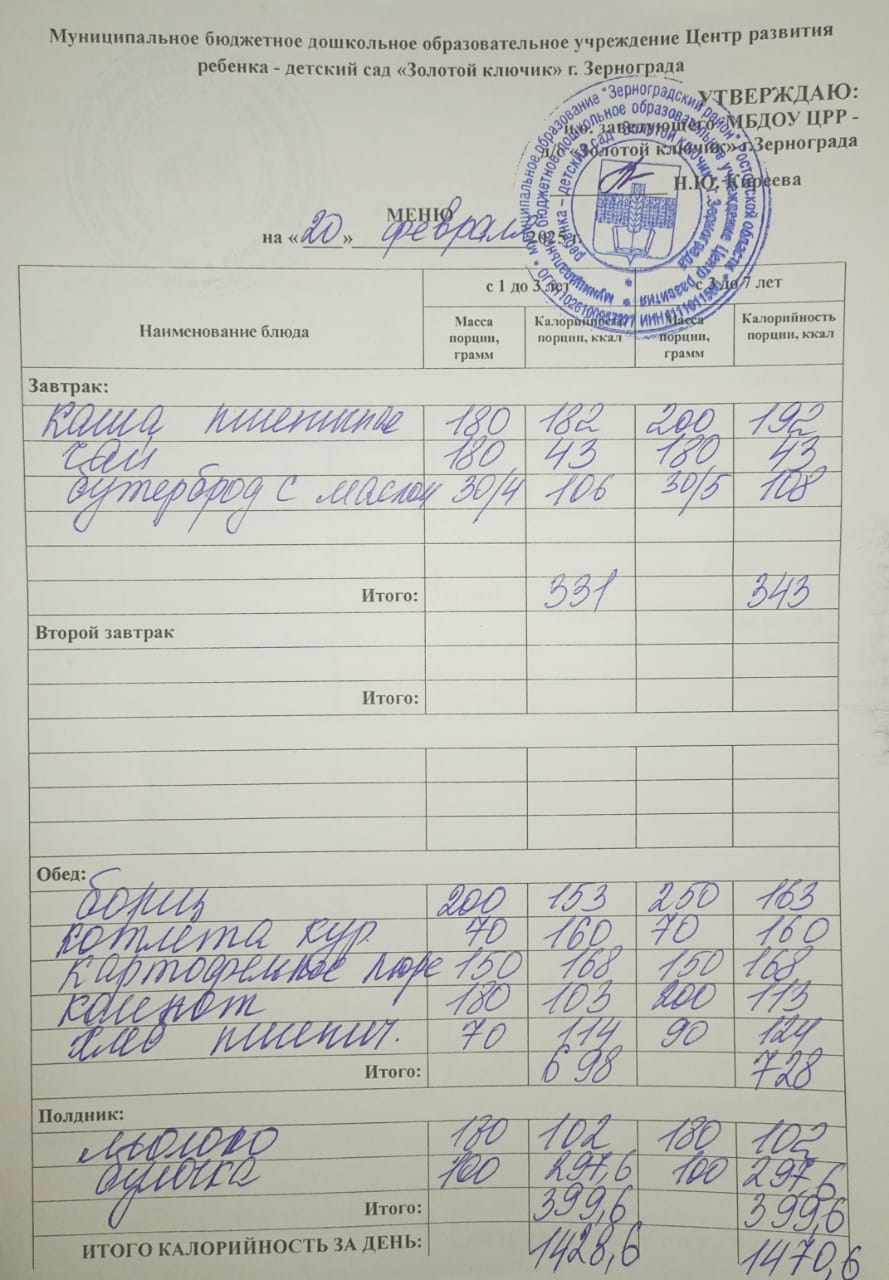 Муниципальное бюджетное дошкольное образовательное учреждение Центр развития
ребенка - детский сад «Золотой ключик» г. Зернограда
УТВЕРЖДАЮ:
и.о. заведующего МБДОУ ЦРР -
д/с «Золотой ключик» г.Зернограда
Н.Ю. Киреева
МЕНЮ
на «20» февраля 2025 г.
с 1 до 3 лет с 3 до 7 лет
Наименование блюда Масса порции, грамм Калорийность порции, ккал Масса порции, грамм Калорийность порции, ккал
Завтрак:
каша пшенная 180 182 200 192
чай 180 43 180 43
бутерброд с маслом 30/4 106 30/5 108
Итого: 331 343
Второй завтрак
Итого:
Обед:
борщ 200 153 250 163
котлета кур. 70 160 70 160
картофельное пюре 150 168 150 168
компот 180 103 200 113
хлеб пшенич. 70 114 90 124
Итого: 698 728
Полдник:
молоко 180 102 180 102
булочка 100 297,6 100 297,6
Итого: 399,6 399,6
ИТОГО КАЛОРИЙНОСТЬ ЗА ДЕНЬ: 1428,6 1470,6